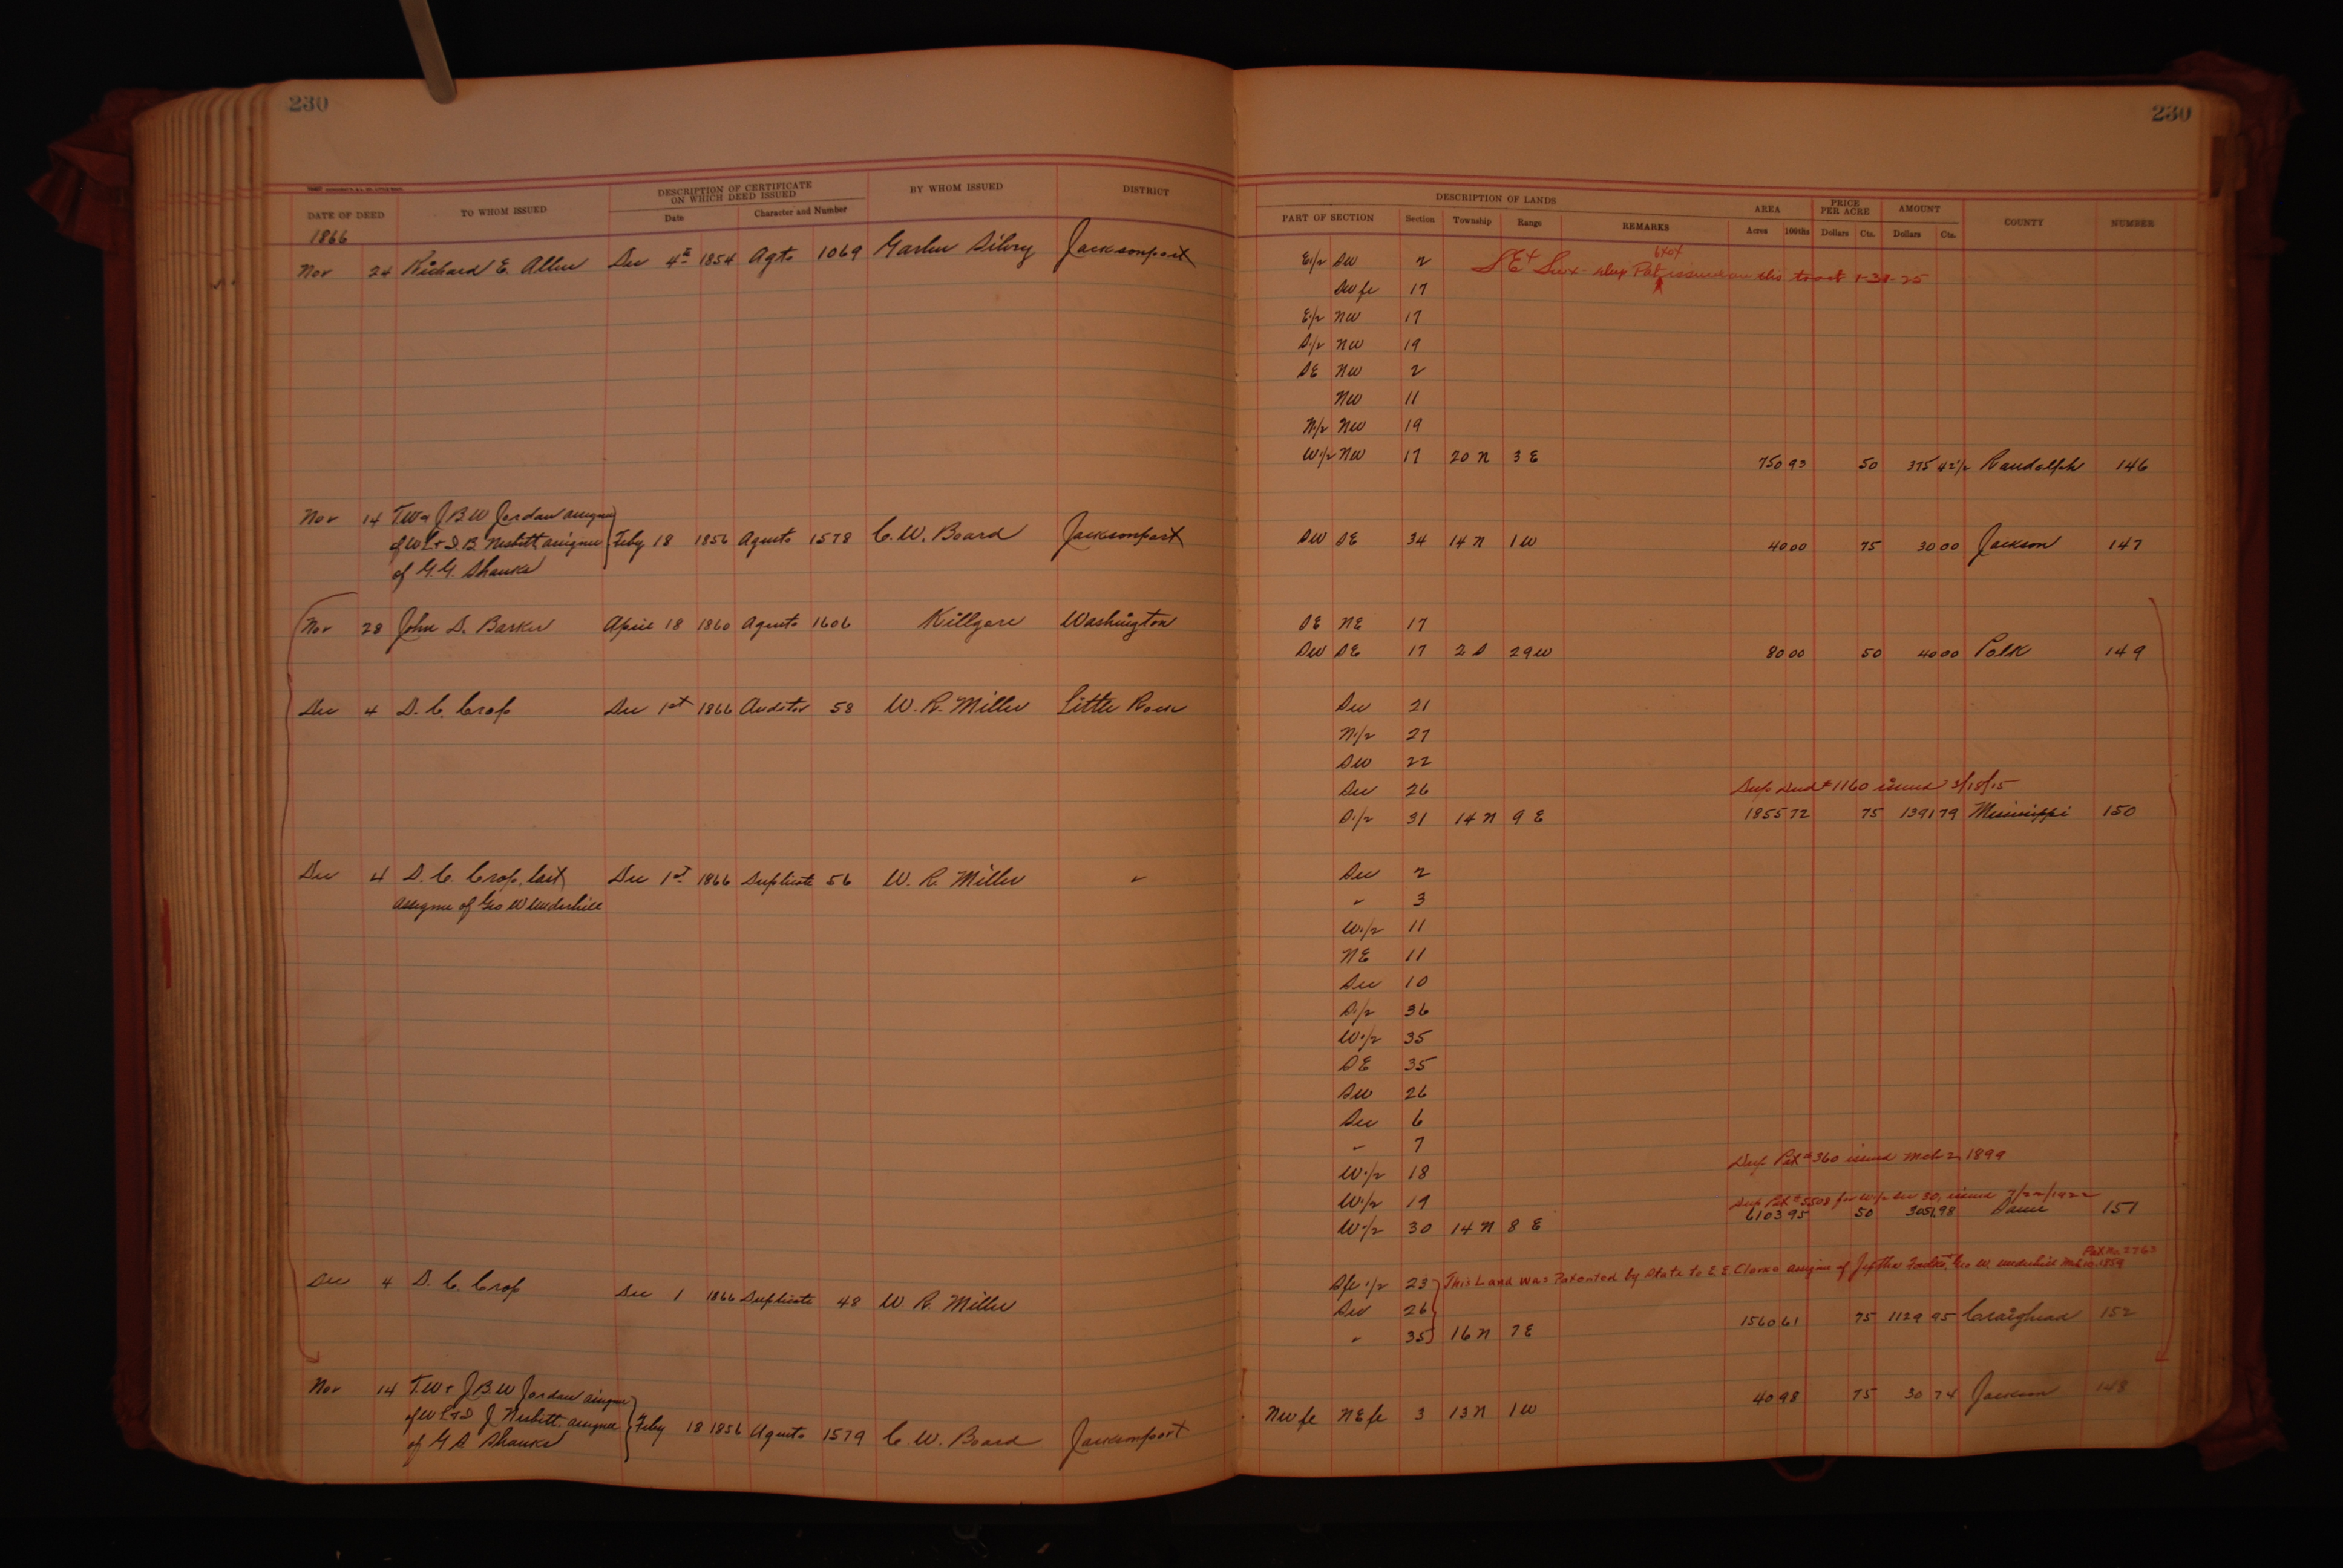 230
230
DESCRIPTION OF CERTIFICATE ON WHICH DEED ISSUED
DATE OF DEED TO WHOM ISSUED Date Character and Number BY WHOM ISSUED DISTRICT
DESCRIPTION OF LANDS
PART OF SECTION Section Township Range REMARKS AREA Acres 100ths PRICE PER ACRE Dollars Cts. AMOUNT Dollars Cts. COUNTY NUMBER
1866
Nov 24 Richard E. Allen Dec 4th 1854 Agts 1069 Jacksonport E 1/2 SW 2
issued on this tract 1-31-25
SW fr 17
E 1/2 NW 17
S 1/2 NW 19
SE NW 2
NW 11
N 1/2 NW 19
W 1/2 NW 17 20 N 3 E 750 93 50 375 42 1/2 Randolph 146
Nov 14 T.W & J.B.W Jordan assignee
of W L & D.B. Nesbitt, assignee Feby 18 1856 Agents 1578 C. W. Board Jacksonport SW SE 34 14 N 1 W 40 00 75 30 00 Jackson 147
of G.G. Shanks
Nov 28 John D. Barker April 18 1860 Agents 1606 Killgore Washington SE NE 17
SW SE 17 2 S 29 W 80 00 50 40 00 Polk 149
Dec 4 D. C. Crop Dec 1st 1866 Auditor 58 W. R. Miller Little Rock Sec 21
N 1/2 27
SW 22
Sec 26 Dup Deed #1160 issued 3/18/15
S 1/2 31 14 N 9 E 1855 72 75 1391 79 Mississippi 150
Dec 4 D. C. Crop, last Dec 1st 1866 Duplicate 56 W. R. Miller " Sec 2
assignee of Geo W Underhill " 3
W 1/2 11
NE 11
Sec 10
S 1/2 36
W 1/2 35
SE 35
SW 26
Sec 6
" 7
W 1/2 18 Dup Pat #360 issued Mch 2, 1899
W 1/2 19 Dup Pat #5508 for W 1/2 Sec 30, issued 7/22/1922
W 1/2 30 14 N 8 E 6103 95 50 3051 98 Same 151
Pat No. 2763
Dec 4 D. C. Crop Dec 1 1866 Duplicate 48 W R. Miller 1/2 23 This Land was Patented by State to E E Clarke assignee of Geo W. Underhill 1859
Sec 26
" 35 16 N 7 E 1560 61 75 1129 95 Craighead 152
Nov 14 T.W & J.B.W Jordan assignee
of W L & D J Nesbitt, assignee Feby 18 1856 Agents 1579 C. W. Board Jacksonport NW fr NE fr 3 13 N 1 W 40 98 75 30 74 Jackson 148
of G Shanks